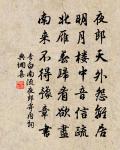 夜郎天外怨離居
明月樓中音信疏
北雁春歸看欲盡
南來不得豫章書
李白南流夜郎寄內